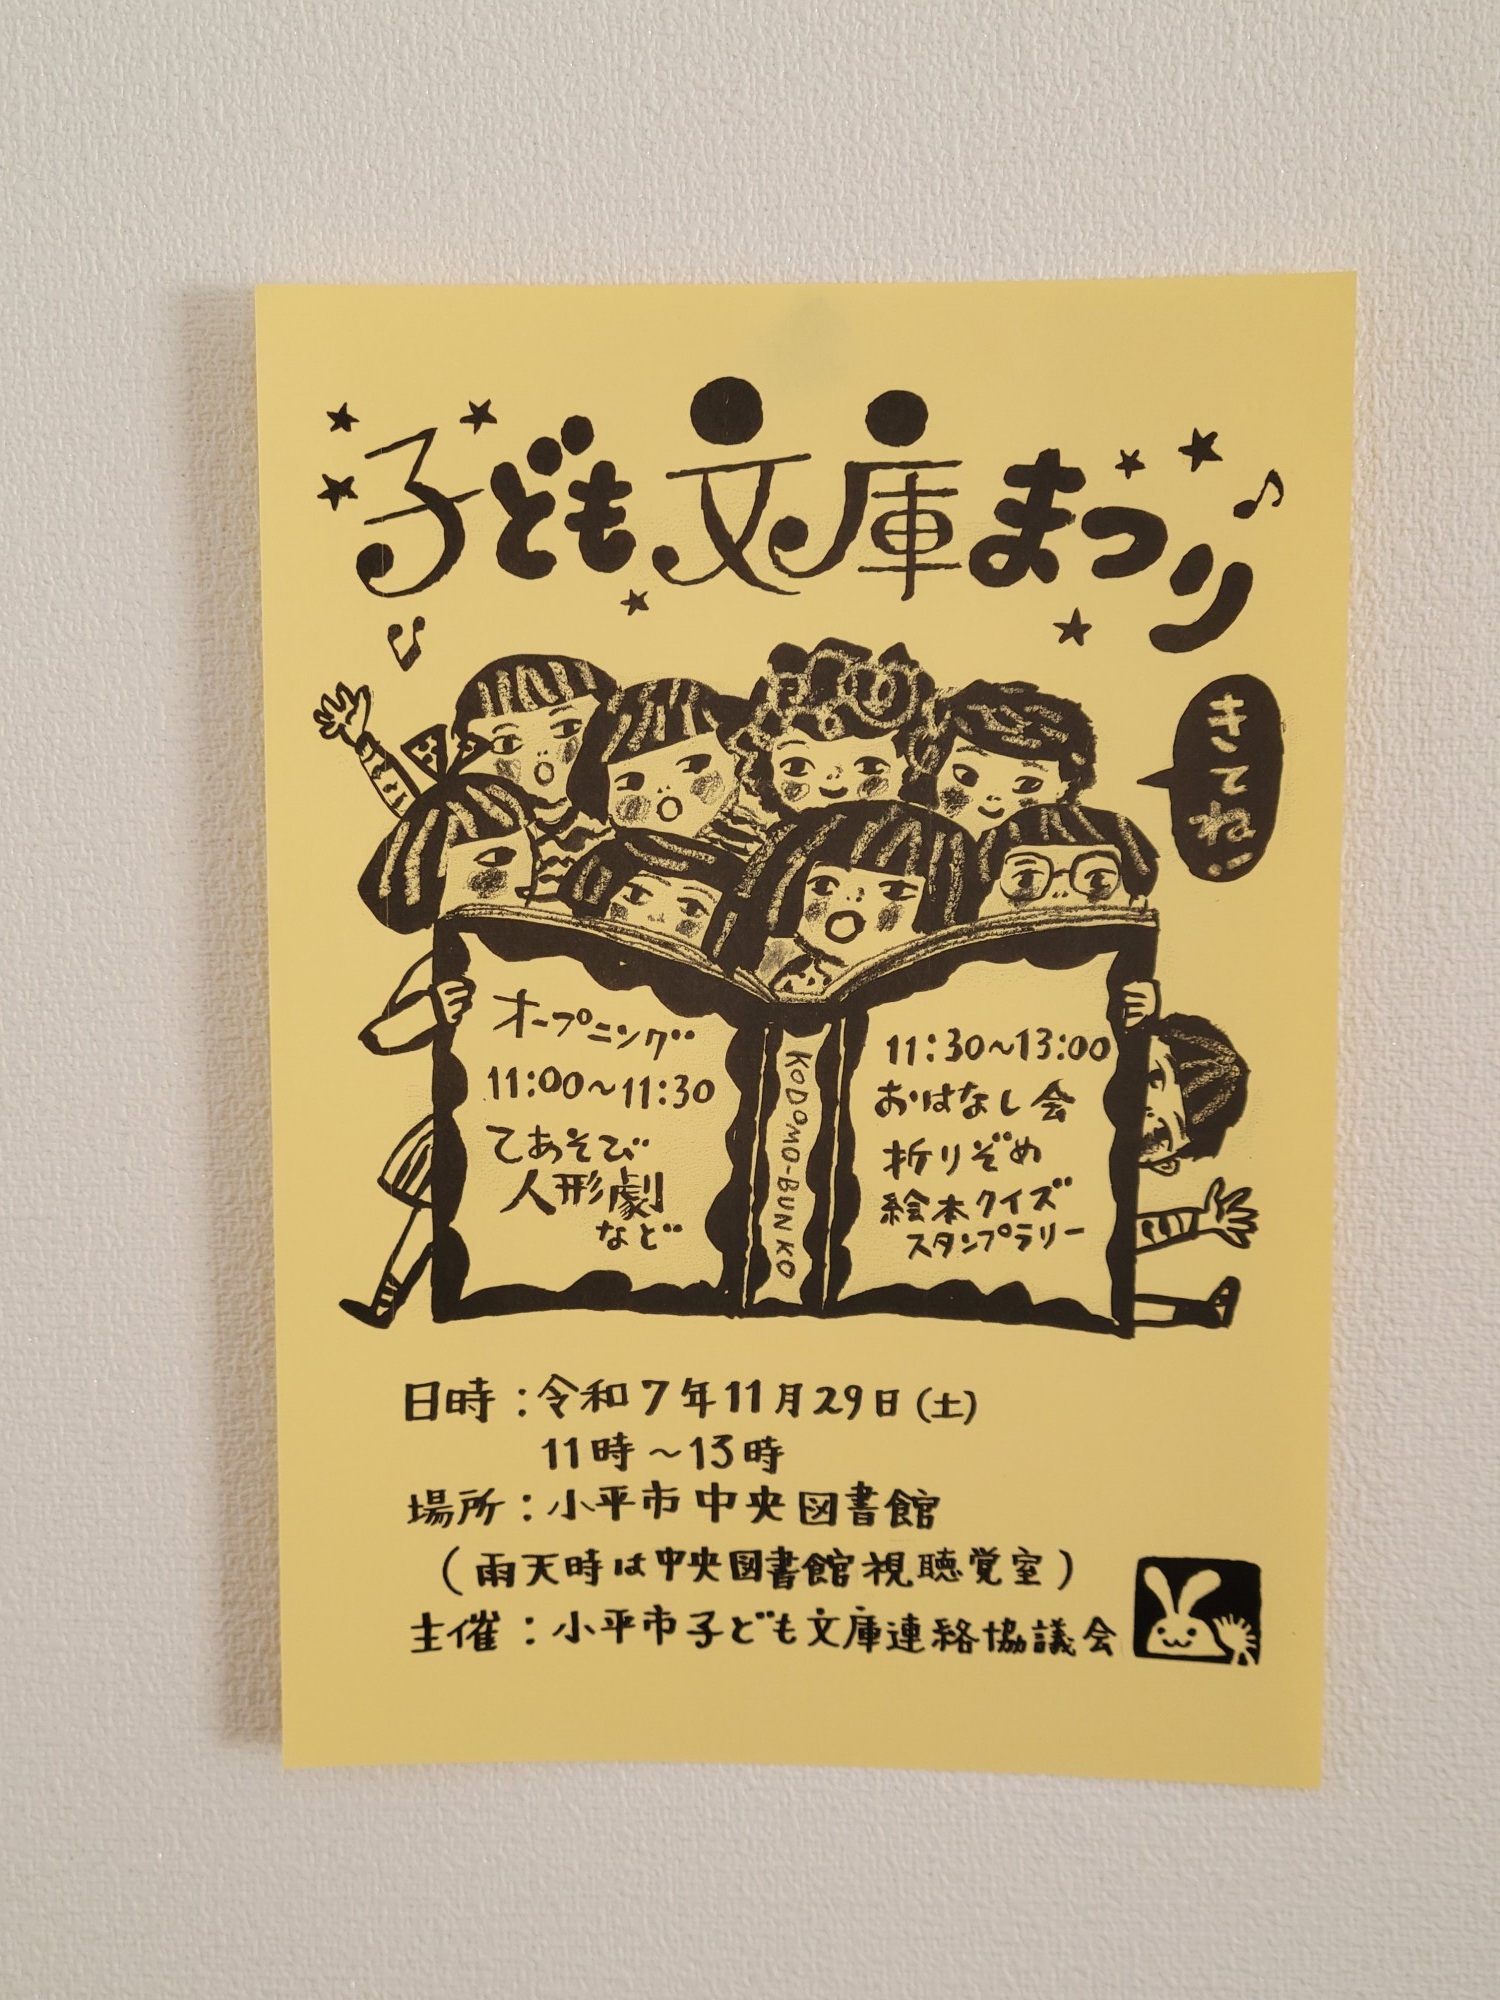 子ども文庫まつり
きてね!
オープニング
11:00～11:30
てあそび
人形劇
など
KODOMO-BUNKO
11:30～13:00
おはなし会
折りぞめ
絵本クイズ
スタンプラリー
日時：令和7年11月29日（土）
11時～13時
場所：小平市中央図書館
（雨天時は中央図書館視聴覚室）
主催：小平市子ども文庫連絡協議会